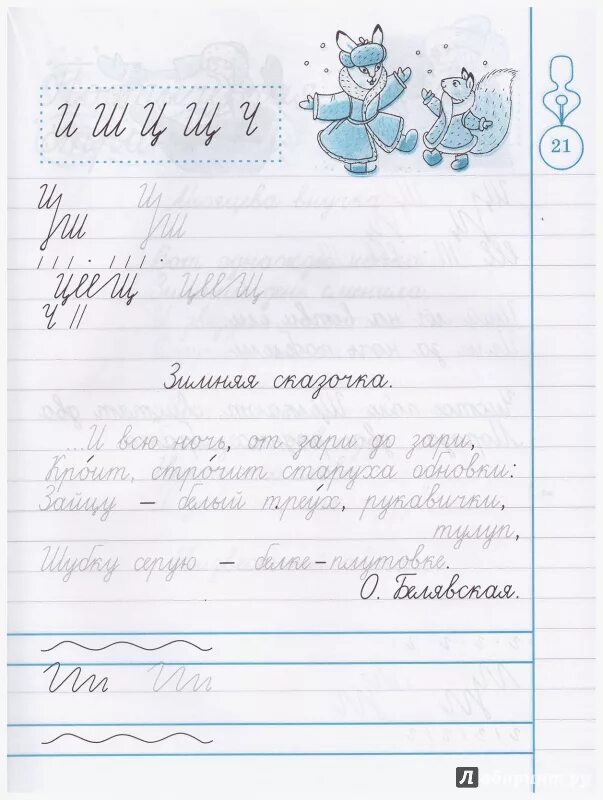 И Ш Ц Щ Ч
21
Зимняя сказочка.
...И всю ночь, от зари до зари,
Кро́ит, стро́чит старуха обновки:
Зайцу – белый треу́х, рукавички,
тулуп,
Шубку серую – белке-плутовке.
О. Белявская.
Лабиринт.ру